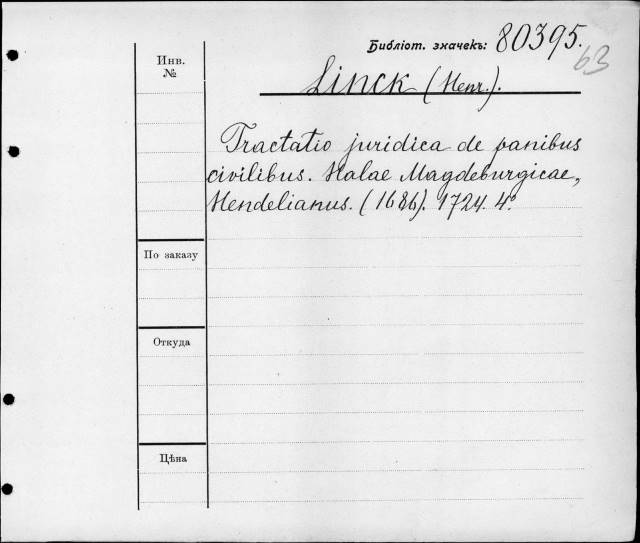 Библіот. значекъ: 80395.
63
Инв.
№
Linck (Henr.).
Tractatio juridica de panibus
civilibus. Halae Magdeburgicae,
Hendelianus. (1686). 1724. 4°.
По заказу
Откуда
Цѣна